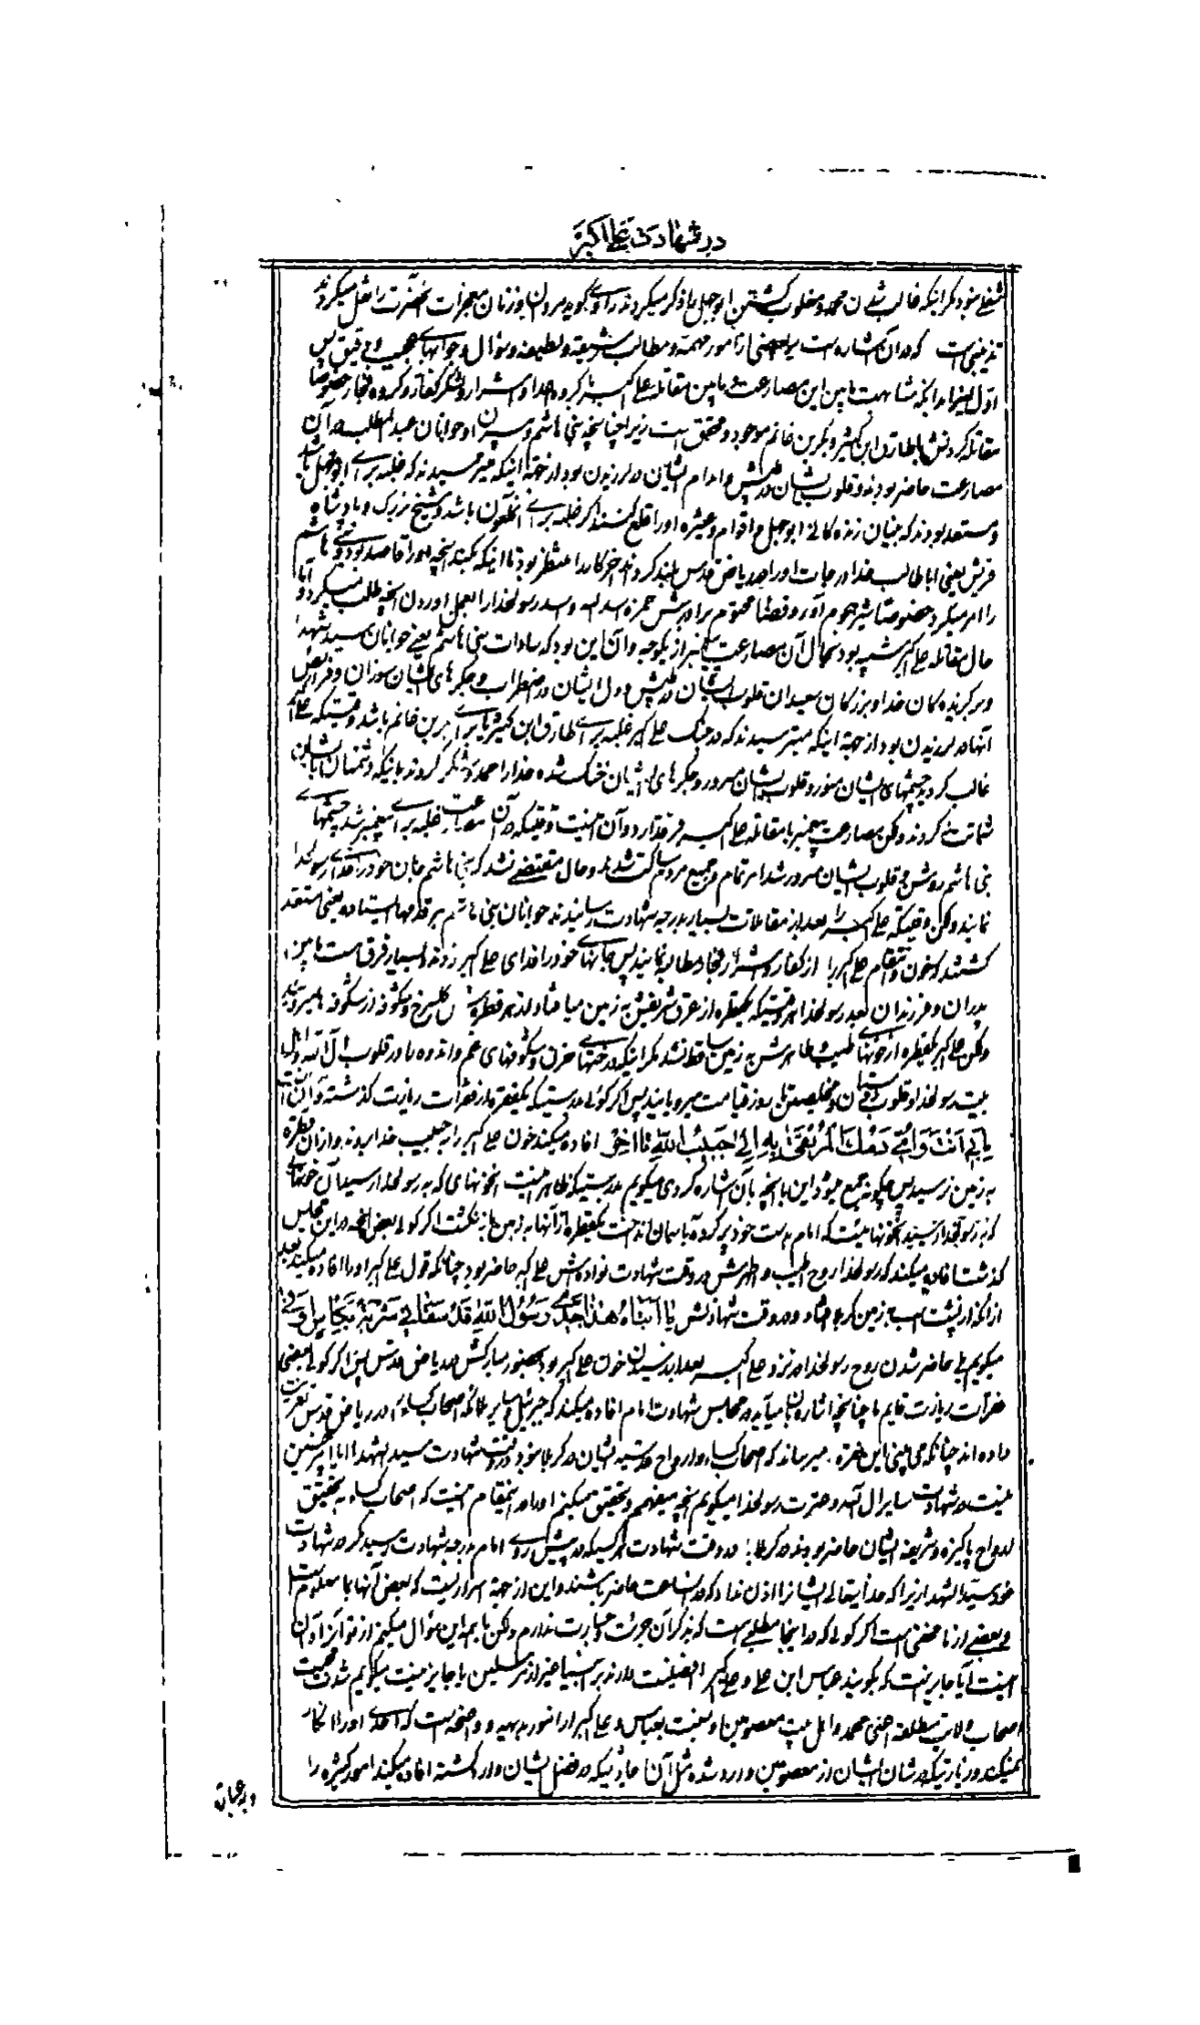 در شهادت علی اکبر
شغلی نبود مگر اینکه غالب شدن محمد و مغلوب گشتن ابوجهل را ذکر میکردند راوی گوید مردان و زنان معجزات آنحضرت را نقل میکردند
تذییلی است که در آن اشاره است بر بعضی از امور مهمه و مطالب شریفه و لطیفه و سؤال و جوابهای عجیب و دقیق پس
اول بعضی از آنکه مشابهت مابین این مصارعت و مابین مقاتله علی اکبر با گروه اعدا و اشرار و لشکر کفار و گروه فجار خصوصا
مقاتله کردنش با طارق ابن کثیر و بکر بن غانم موجود و محقق است زیرا چنانچه بنی هاشم و پسران و جوانان عبدالمطلب در آن
مصارعت حاضر بودند و قلوب ایشان در طپش و اندام ایشان در لرزیدن بود از جهة اینکه میترسیدند که غلبه برای ابوجهل باشد
و مستعد بودند که بنیان زندگانی ابوجهل و اقوام و عشیره او را قلع کنند اگر غلبه برای آن ملعون باشد و شیخ بزرگ و پادشاه
قریش یعنی اباطالب خدا درجات او را در ریاض قدس بلند کرداند آخر کار را منتظر بود تا اینکه بکند آنچه او را قاصد بود بنی هاشم
را امر میکرد خصوصا شیر هجوم آور و قضای محتوم برادرش حمزه اسد الله و اسد رسولخدا را بعمل آوردن آنچه طلب میکرد و اما
حال مقاتله علی اکبر شبیه بود بحال آن مصارعت پیغمبر از یکوجه و آن این بود که سادات بنی هاشم یعنی جوانان سید شهدا
و برگزیدگان خدا و بزرگان سعیدان قلوب ایشان در طپش و دل ایشان در اضطراب و جگرهای ایشان سوزان و فرایص
آنها در لرزیدن بود از جهة اینکه میترسیدند که در جنگ علی اکبر غلبه برای طارق ابن کثیر یا برای بکر بن غانم باشد وقتیکه علی اکبر
غالب گردید چشمهای ایشان منور و قلوب ایشان مسرور و جگرهای ایشان خنک شده خدا را حمد و شکر کردند باینکه دشمنان بایشان
شماتت نکردند ولکن مصارعت پیغمبر با مقاتله علی اکبر فرقی دارد و آن اینست وقتیکه در آن مصارعت غلبه برای پیغمبر شد چشمهای
بنی هاشم روشن و قلوب ایشان مسرور شد امر تمام و جمیع مردم ساکت شدند و حال مقتضی نشد که بنی هاشم جان خود را فدای رسولخدا
نمایند ولکن وقتیکه علی اکبر را بعد از مقاتلات بسیار بدرجه شهادت رسانیدند جوانان بنی هاشم بر قدمها ایستاده یعنی مستعد
گشتند که خون و انتقام علی اکبر را از کفار و اشرار و فجار مطالبه نمایند پس جانهای خود را فدای علی اکبر زدند بسیار فرق است مابین
پدران و فرزندان بعد رسولخدا هر وقتیکه یکقطره از عرق شریفش به زمین میافتاد از هر قطره اش گل سرخ و شکوفه از شکوفه ها میروئید
ولکن علی اکبر یکقطره از خونهای طیب و طاهرش بر زمین ساقط نشد مگر اینکه درختهای حزن و شکوفهای غم و اندوه را در قلوب آل الله و اهل
بیت رسولخدا و قلوب دوستان و مخلصین تا روز قیامت میرویانید پس اگر گوئی بدرستیکه یکفقره از فقرات زیارت گذشته و آن اینست
بابی انت و امی دمک المرتقی به الی حبیب الله تا آخر افاده میکند خون علی اکبر را به حبیب خدا بردند و از آن قطره
به زمین نرسید پس چگونه جمع میشود این با آنچه بآن اشاره کردی میگویم بدرستیکه ظاهر اینست آنخونهائی که به رسولخدا رسید آن خونهای
که به رسولخدا رسید آنخونهائیست که امام بدست خود پر کرده بآسمان انداخت یکقطره از آنها به زمین باز نگشت اگر گوئی بعض آنچه در این مجلس
گذشت افاده میکند که رسولخدا روح طیب و طاهرش در وقت شهادت نواده اش علی اکبر حاضر بود چنانکه قول علی اکبر او را افاده میکند بعد
از آنکه از پشت اسب به زمین کربلا افتاد و در وقت شهادتش یا ابتاه هذا جدی رسول الله قد سقانی شربة بکاس اوفی
میگویم بلی حاضر شدن روح رسولخدا در نزد علی اکبر بعد از رسیدن خون علی اکبر بود بحضور مبارکش در ریاض قدس پس اگر گوئی بعضی
فقرات زیارت قایم ما چنانچه اشاره بآنها میآید در مجلس شهادت امام افاده میکند که جبرئیل و سایر ملائکه اصحاب کساء را در ریاض قدس تعزیت
داده اند چنانکه می بینی این فقره میرساند که اصحاب کساء و ارواح قدسیه ایشان در کربلا نبود در وقت شهادت سید الشهدا اباعبدالحسین
نیست در شهادت سایر آل آنحضرت رسولخدا میگویم آنچه میفهمم و تحقیق میکنم او را در اینمقام اینست که اصحاب کساء به تحقیق
ارواح پاکیزه و شریفه ایشان حاضر بودند در کربلا در وقت شهادت هر کسیکه در پیش روی امام بدرجه شهادت رسید مگر در شهادت
خود سید الشهدا زیرا که خدا یتعالی ایشان را اذن نداد که در آن ساعت حاضر باشند و این از جهة اسراریست که بعض آنها بما معلوم است
و بعضی از ما مخفی است اگر گوئی که در اینجا مطلبی است که بذکر آن جرئت و جسارت ندارم ولکن با هم این سؤال میکنم از تو آنرا و آن
اینست آیا جایز نیست که بگویند عباس ابن علی و علی اکبر افضلیت دارند بر انبیا غیر از مرسلین یا جایز نیست میگویم شدت محبت
اصحاب ولایت مطلقه اعنی محمد و اهل بیت معصومین او نسبت بعباس و علی اکبر از امور بدیهیه و واضحه است که احدی او را انکار
نمیکند و زیارتیکه در شان ایشان از معصومین وارد شده مثل آن احادیثیکه در فضل ایشان وارد گشته افاده میکند امور کثیره را